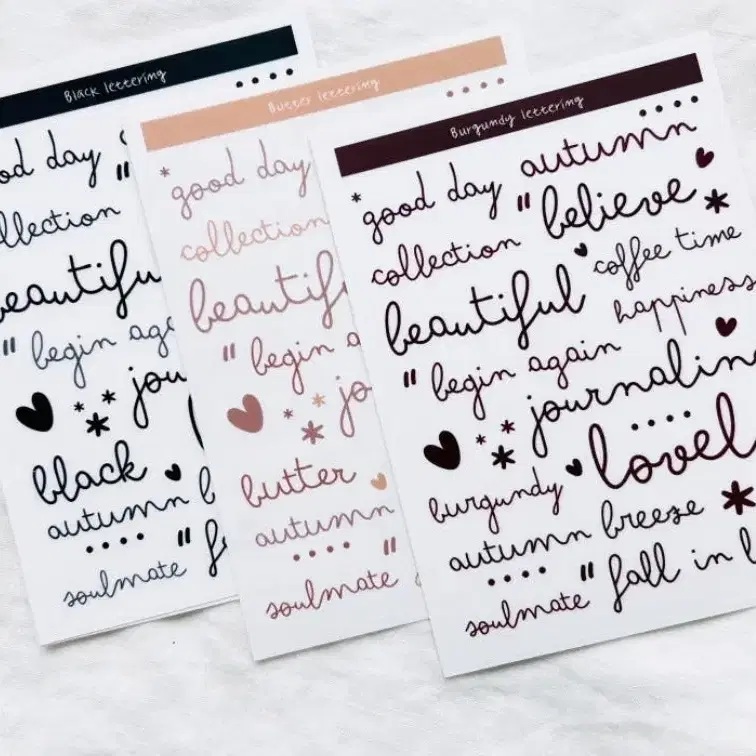 Black lettering
day
beautifu
begin
black
autumn
soulmate
Butter lettering
good day
collection
beautif
begin
butter
autumn
soulmate
Burgundy lettering
good day autumn
collection " believe
beautiful coffee time
happiness
" begin again
journalin
lovel
burgundy
autumn breeze
soulmate " fall in